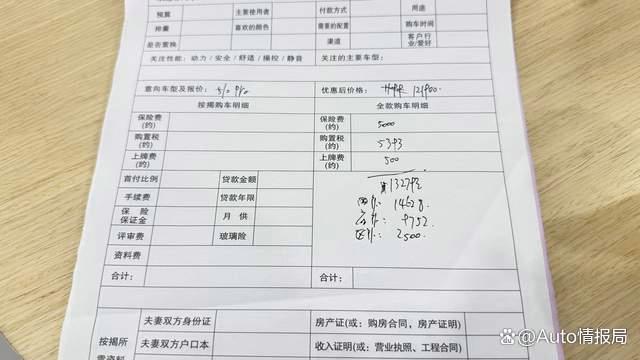 预算 主要使用者 付款方式 用途
排量 喜欢的颜色 需要的配置 购车时间
是否置换 渠道 客户行业/爱好
关注性能：动力/安全/舒适/操控/静音 关注的主要车型：
意向车型及报价： 优惠后价格： 121900
按揭购车明细 全款购车明细
保险费(约) 保险费(约) 5000
购置税(约) 购置税(约) 5393
上牌费(约) 上牌费(约) 500
首付比例 贷款金额 132793
手续费 贷款年限 14628
保险保证金 月供 9752
评审费 玻璃险 2500
资料费
合计： 合计：
按揭所需资料
夫妻双方身份证 房产证(或：购房合同，房产证明)
夫妻双方户口本 收入证明(或：营业执照、工程合同)
Auto情报局